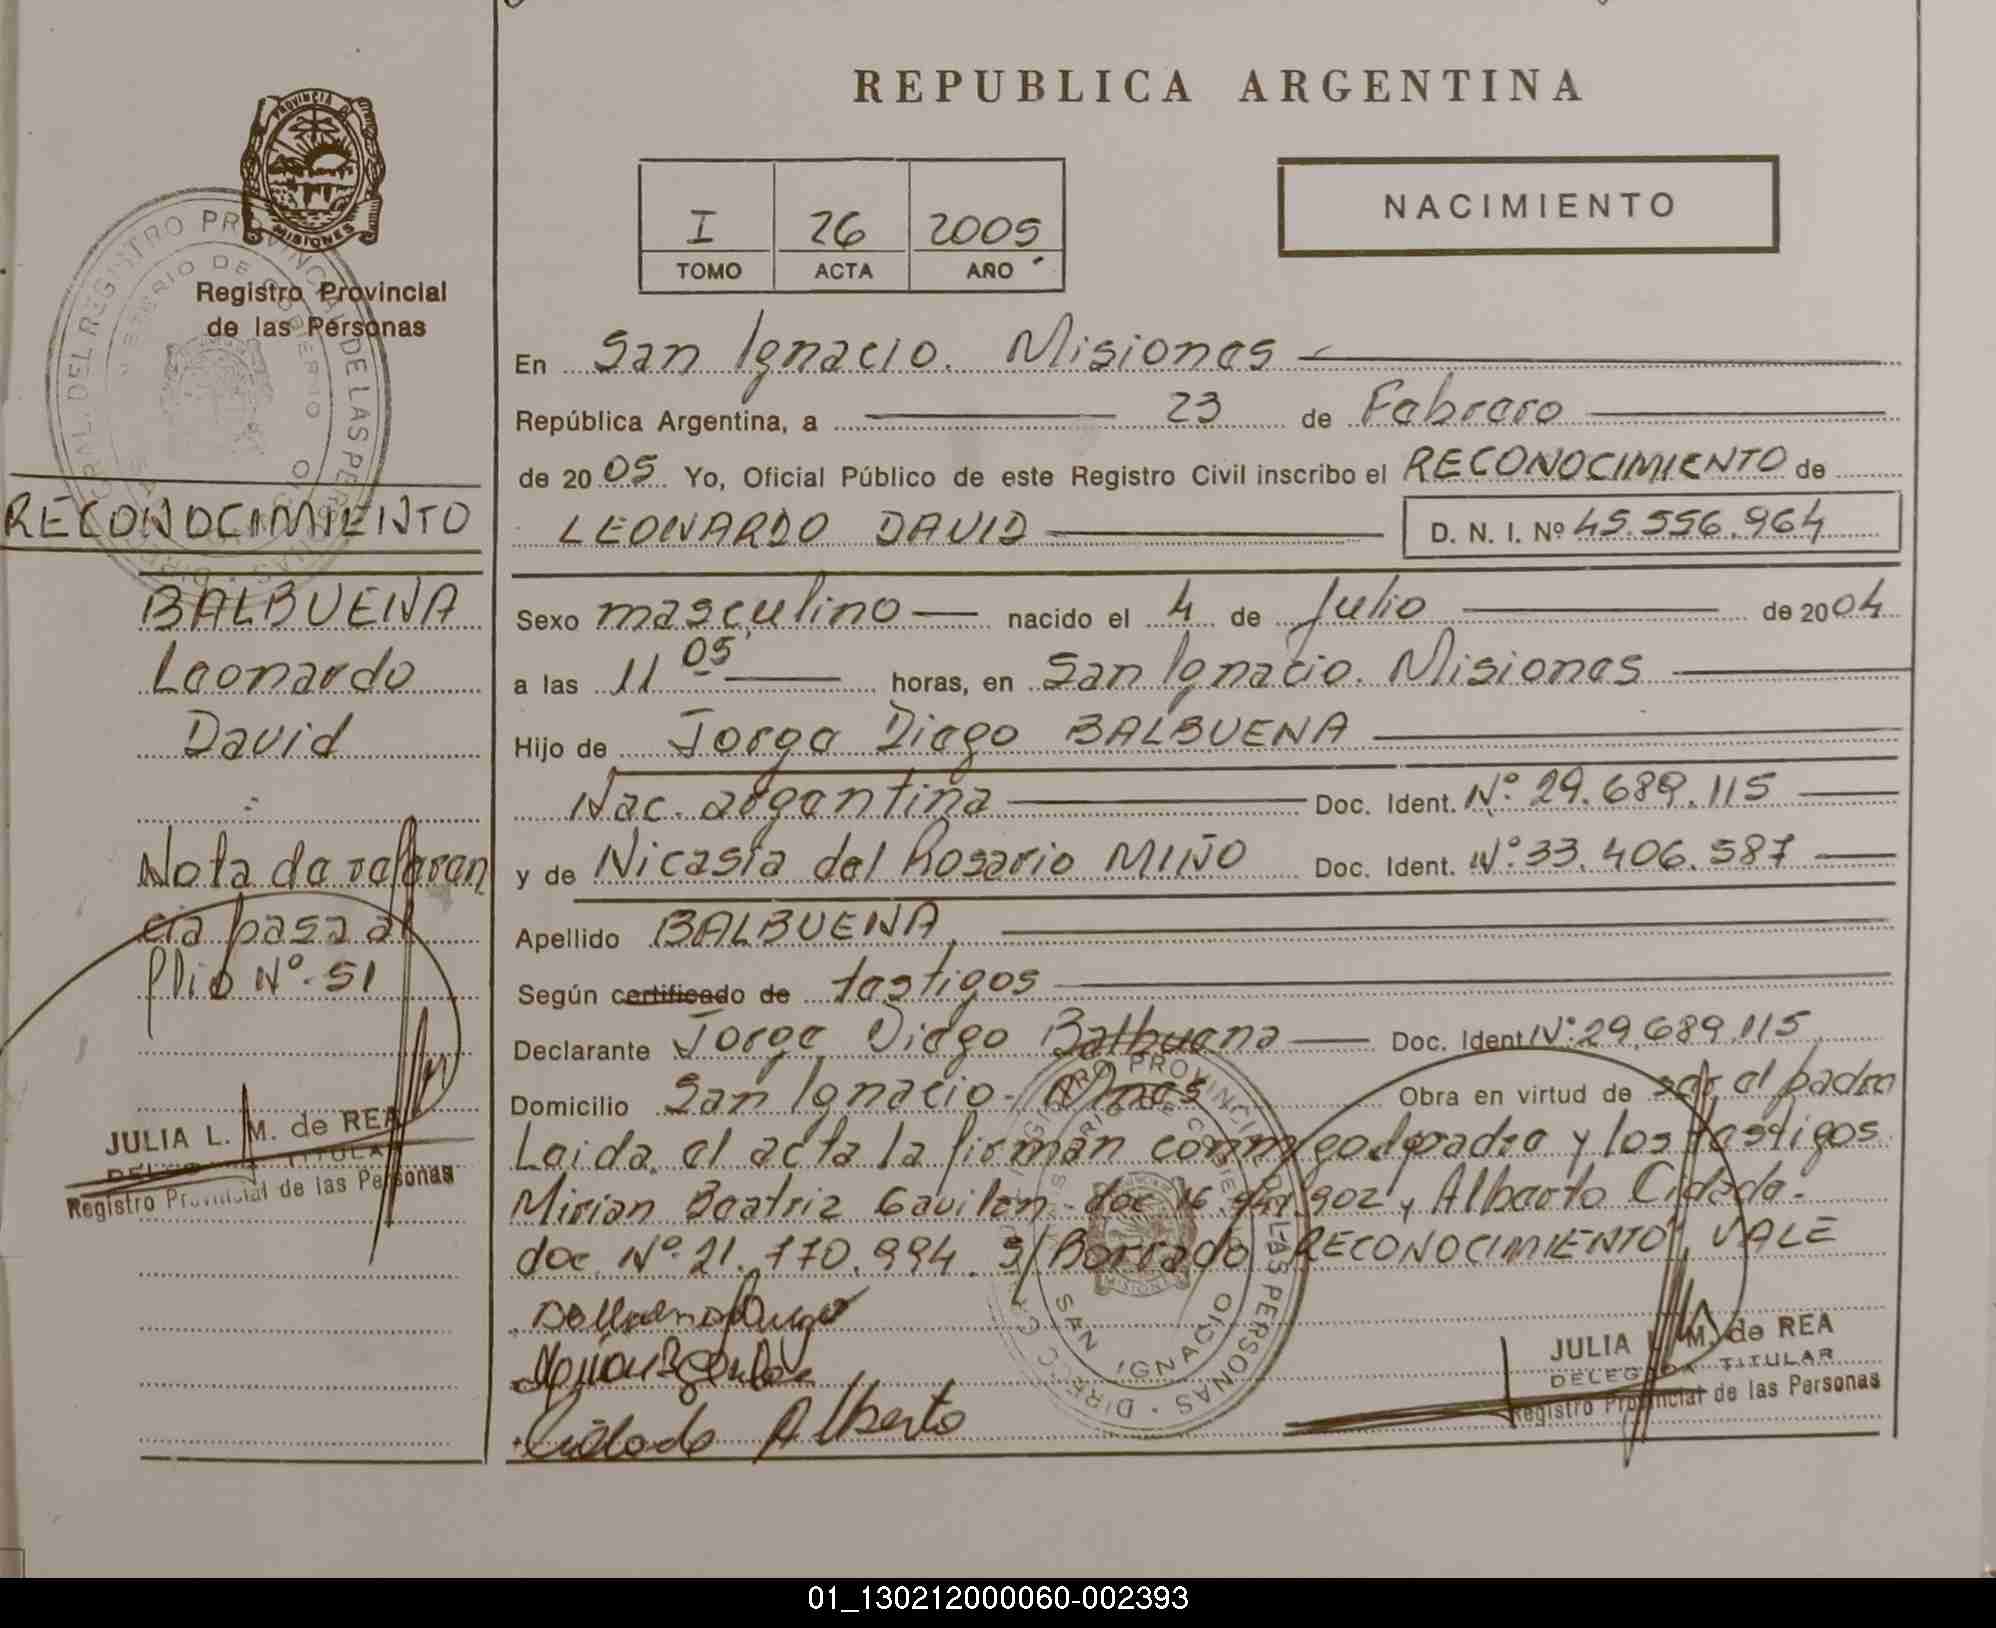 REPUBLICA ARGENTINA
PROVINCIA DE
MISIONES
Registro Provincial
de las Personas
RECONOCIMIENTO
BALBUENA
Leonardo
David
Nota de referen
cia pasa al
folio Nº 51
JULIA L. M. de REA
DELEGADA TITULAR
Registro Provincial de las Personas
I 26 2005
TOMO ACTA AÑO
NACIMIENTO
En San Ignacio. Misiones
República Argentina, a 23 de Febrero
de 2005 Yo, Oficial Público de este Registro Civil inscribo el RECONOCIMIENTO de
LEONARDO DAVID D. N. I. Nº 45.556.964
Sexo masculino nacido el 4 de Julio de 2004
a las 11 05 horas, en San Ignacio. Misiones
Hijo de Jorge Diego BALBUENA
Nac. argentina Doc. Ident. Nº 29.689.115
y de Nicasia del Rosario MIÑO Doc. Ident. Nº 33.406.587
Apellido BALBUENA
Según certificado de testigos
Declarante Jorge Diego Balbuena Doc. Ident Nº 29.689.115
Domicilio San Ignacio - Mnes Obra en virtud de ser el padre
Leida el acta la firman conmigo el padre y los testigos
Mirian Beatriz Gavilan - doc 16. 902 y Alberto Cidade -
doc. Nº 21.770.994. S/Borrado "RECONOCIMIENTO", VALE
Alberto
SAN IGNACIO
JULIA L. M. de REA
DELEGADA TITULAR
Registro Provincial de las Personas
01_130212000060-002393